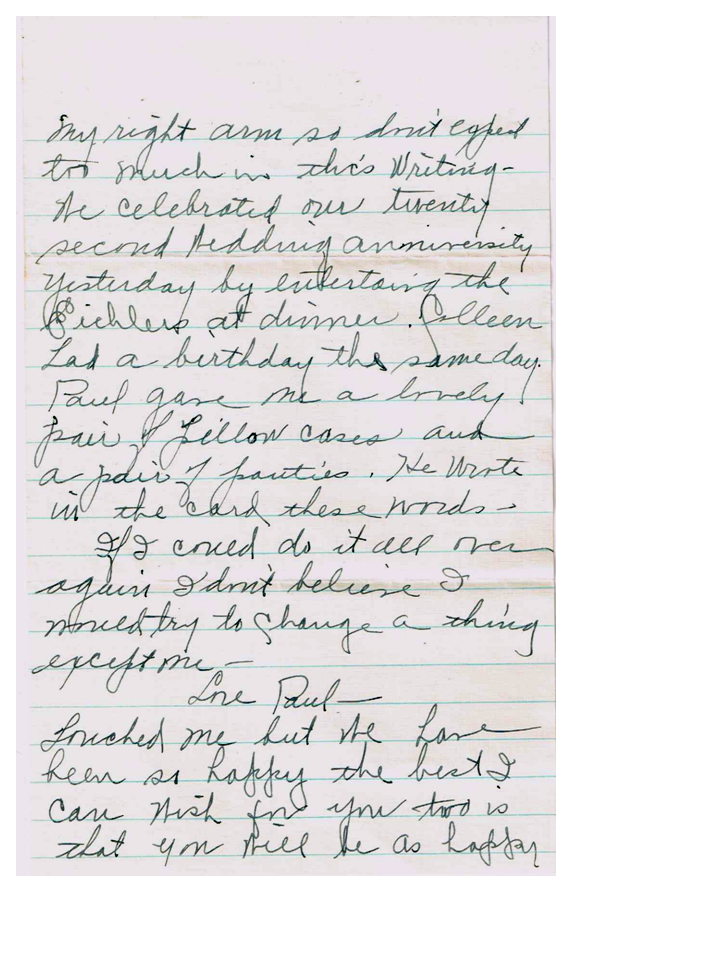 my right arm so don't expect
too much in this writing -
We celebrated our twenty
second Wedding anniversity
yesterday by entertaing the
Eichlers at dinner. Colleen
had a birthday the same day.
Paul gave me a lovely
pair of pillow cases and
a pair of panties. He wrote
in the card these words -
If I could do it all over
again I don't believe I
would try to change a thing
except me -
Love Paul -
Touched me but We have
been so happy the best I
can wish for you two is
that you will be as happy